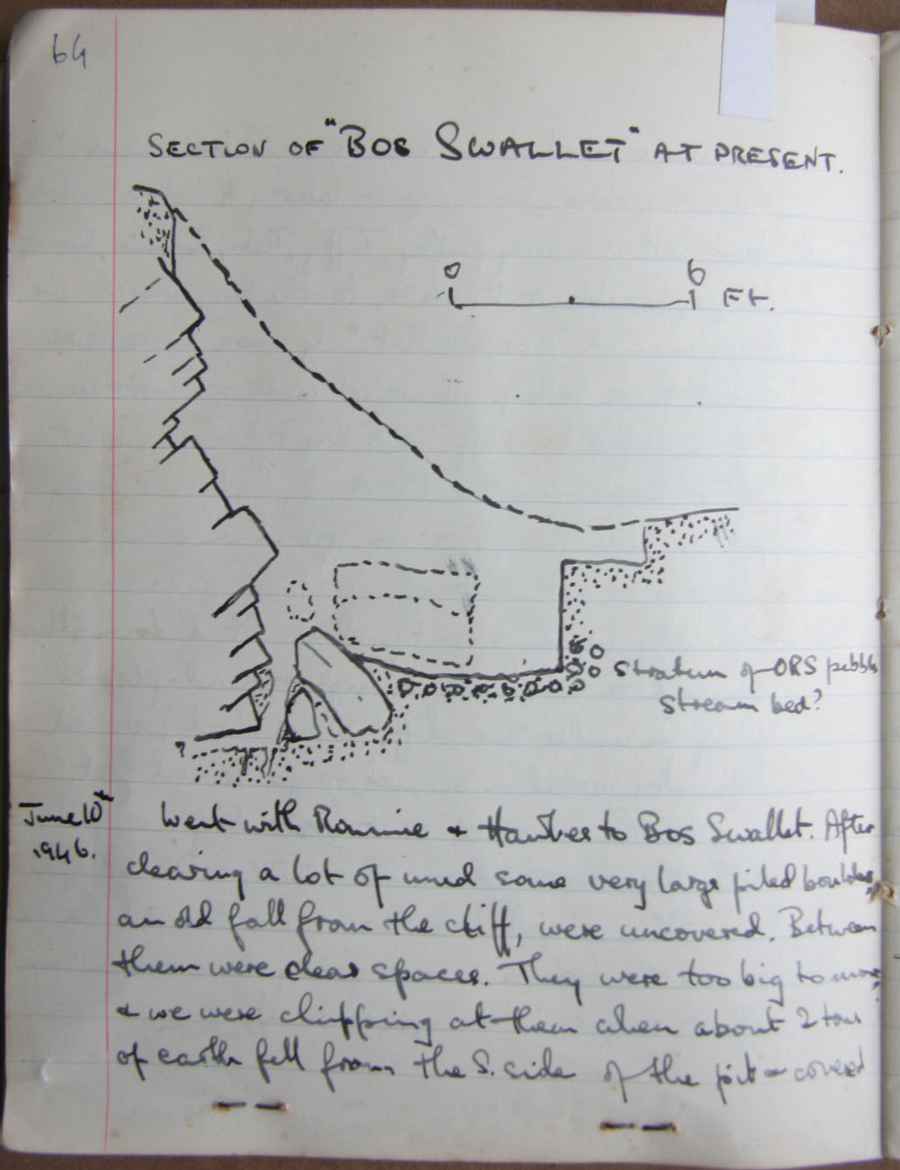 64
SECTION OF "BOS SWALLET" AT PRESENT.
0 6 Ft.
Stratum of ORS pebble
Stream bed?
?
June 10th
1946.
Went with Ronnie + to Bos Swallet. After
clearing a lot of mud some very large piled boulders,
an old fall from the cliff, were uncovered. Between
them were clear spaces. They were too big to move
+ we were chipping at them when about 2 tons
of earth fell from the S. side of the pit + covered